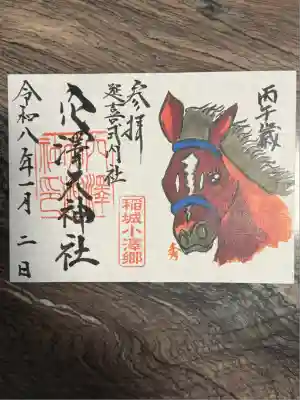 丙午歳
参拝
延喜式内社
穴澤天神社
稲城小澤郷
令和八年一月二日